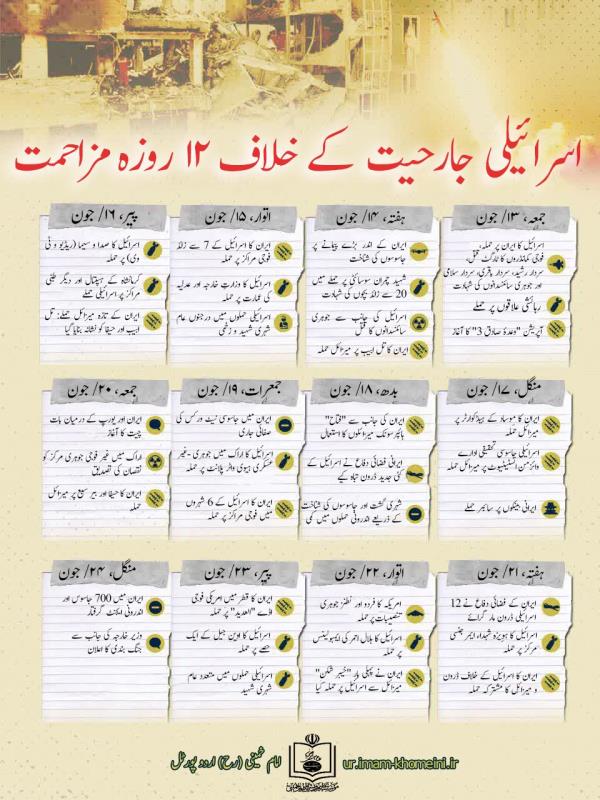 اسرائیلی جارحیت کے خلاف ۱۲ روزہ مزاحمت
جمعہ، ۱۳/ جون
اسرائیل کا ایران پر حملہ،
فوجی کمانڈروں کا ٹارگٹ قتل،
سردار رشید، سردار باقری، سردار سلامی
اور جوہری سائنسدانوں کی شہادت
رہائشی علاقوں پر حملے
آپریشن "وعدۂ صادق 3" کا آغاز
ہفتہ، ۱۴/ جون
ایران کے اندر بڑے پیمانے پر
جاسوسوں کی شناخت
شہید چمران سوسائٹی پر حملے میں
20 سے زائد بچوں کی شہادت
اسرائیل کی جانب سے جوہری
سائنسدانوں کا قتل
ایران کا تل ابیب پر میزائل حملہ
اتوار، ۱۵/ جون
ایران کا اسرائیل کے 7 سے زائد
فوجی مراکز پر حملہ
اسرائیل کا وزارت خارجہ اور عدلیہ
کی عمارت پر حملہ
اسرائیلی حملوں میں درجنوں عام
شہری شہید و زخمی
پیر، ۱۶/ جون
اسرائیل کا صدا و سیما (ریڈیو و ٹی
وی) پر حملہ
کرمانشاہ کے ہسپتال اور دیگر طبی
مراکز پر اسرائیلی حملے
ایران کے تازہ میزائل حملے: تل
ابیب اور حیفا کو نشانہ بنایا گیا
منگل، ۱۷/ جون
ایران کا موساد کے ہیڈکوارٹر پر
میزائل حملہ
اسرائیلی جاسوسی تحقیقی ادارے
وائزمن انسٹیٹیوٹ پر میزائل حملہ
ایرانی بینکوں پر سائبر حملے
بدھ، ۱۸/ جون
ایران کی جانب سے "فتاح"
ہائپرسونک میزائلوں کا استعمال
ایرانی فضائی دفاع نے اسرائیل کے
کئی جدید ڈرون تباہ کیے
شہری گشت اور جاسوسوں کی شناخت
کے ذریعے اندرونی حملوں میں کمی
جمعرات، ۱۹/ جون
ایران میں جاسوسی نیٹ ورکس کی
صفائی جاری
اسرائیل کا اراک میں جوہری-غیر
عسکری ہیوی واٹر پلانٹ پر حملہ
ایران کا اسرائیل کے 6 شہروں
میں فوجی مراکز پر حملہ
جمعہ، ۲۰/ جون
ایران اور یورپ کے درمیان بات
چیت کا آغاز
اراک میں غیر فوجی جوہری مرکز کو
نقصان کی تصدیق
ایران کا حیفا اور بیر سبع پر میزائل
حملہ
ہفتہ، ۲۱/ جون
ایران کے فضائی دفاع نے 12
اسرائیلی ڈرون مار گرائے
اسرائیل کا ہویزہ شہداء ایمرجنسی
مرکز پر حملہ
ایران کا اسرائیل کے خلاف ڈرون
و میزائل کا مشترکہ حملہ
اتوار، ۲۲/ جون
امریکہ کا فردو اور نطنز جوہری
تنصیبات پر حملہ
اسرائیل کا ہلال احمر کی ایمبولینس
پر حملہ
ایران نے پہلی بار "خیبر شکن"
میزائل سے اسرائیل پر حملہ کیا
پیر، ۲۳/ جون
ایران کا قطر میں امریکی فوجی
اڈے "العدید" پر حملہ
اسرائیل کا اوین جیل کے ایک
حصے پر حملہ
اسرائیلی حملوں میں متعدد عام
شہری شہید
منگل، ۲۴/ جون
ایران میں 700 جاسوس اور
اندرونی ایجنٹ گرفتار
وزیر خارجہ کی جانب سے
جنگ بندی کا اعلان
امام خمینی (رح) اردو پورٹل
ur.imam-khomeini.ir